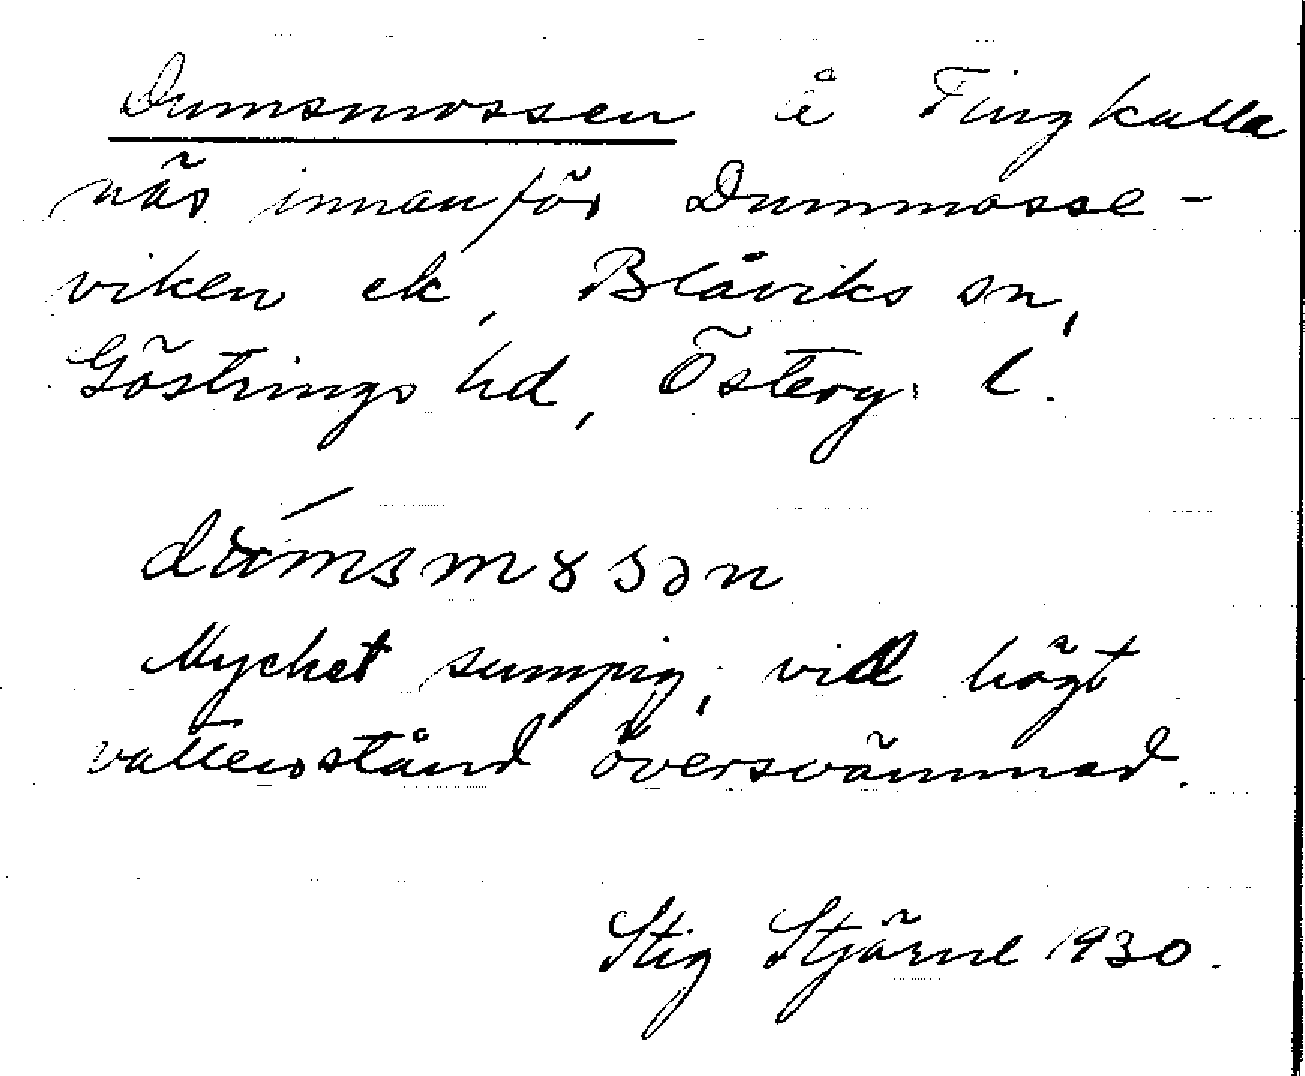 Dumsmossen å Tingkulla
näs innanför Dummosse-
viken ek, Blåviks sn,
Göstrings hd, Österg: l.
Mycket sumpig, vid högt
vattenstånd översvämmad.
Stig Stjärne 1930.